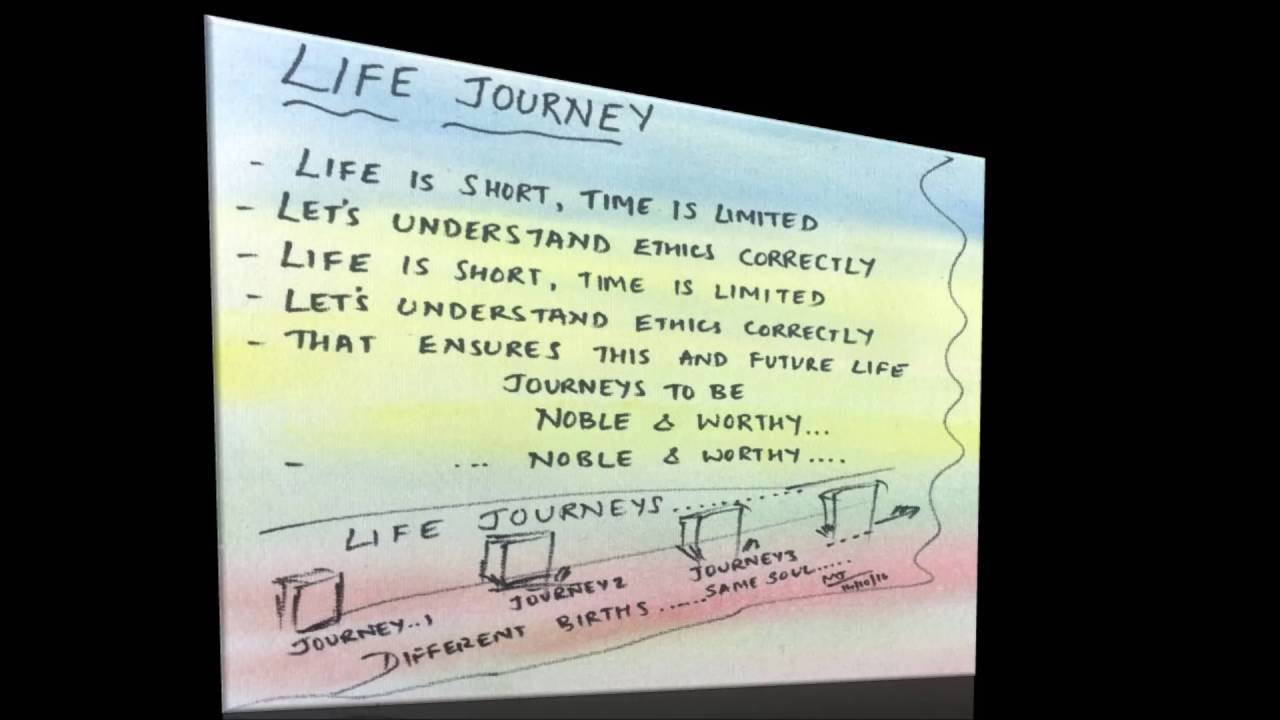 LIFE JOURNEY
- LIFE IS SHORT, TIME IS LIMITED
- LET'S UNDERSTAND ETHICS CORRECTLY
- LIFE IS SHORT, TIME IS LIMITED
- LET'S UNDERSTAND ETHICS CORRECTLY
- THAT ENSURES THIS AND FUTURE LIFE
JOURNEYS TO BE
NOBLE & WORTHY...
- ... NOBLE & WORTHY....
LIFE JOURNEYS..........
JOURNEY..1
JOURNEY 2
JOURNEY3
SAME SOUL.....
DIFFERENT BIRTHS......